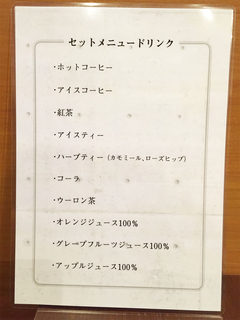 セットメニュードリンク
・ホットコーヒー
・アイスコーヒー
・紅茶
・アイスティー
・ハーブティー（カモミール、ローズヒップ）
・コーラ
・ウーロン茶
・オレンジジュース100％
・グレープフルーツジュース100％
・アップルジュース100％